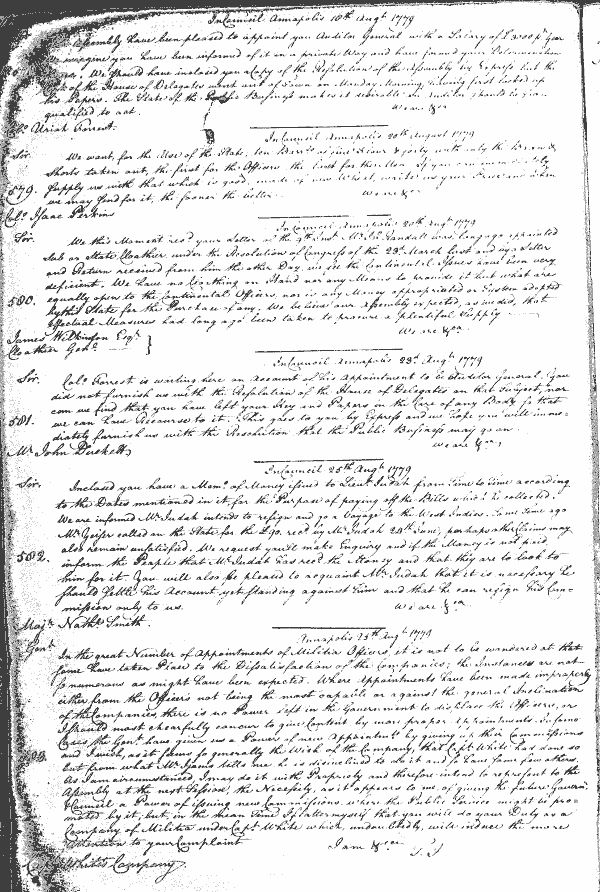 In Council Annapolis 18th Augt 1779
Assembly have been pleased to appoint you Auditor General with a Salary of £3000 pr Year
imagine you have been informed of it in a private Way and have found your Determination
We should have inclosed you a Copy of the Resolution of the Assembly by Express but the
Clk of the House of Delegates went out of Town on Monday Morning having first locked up
his Papers. The State of the Public Business makes it desirable an Auditor should be
qualified to act We are &ca
Colo Uriah Forrest.
In Council Annapolis 20th August 1779
Sir.
We want, for the Use of the State, ten Barrels fine Flour & forty with only the Bran &
Shorts taken out, the first for the Officers the last for the Men. If you can immediately
579.
supply us with that which is good, made of new Wheat, write us your Price and when
we may send for it, the sooner the better We are &ca
Colo Isaac Perkins
In Council Annapolis 20th Augt 1779
Sir.
We this Moment recd your Letter of the 9th Inst. Mr Jno Randall was long ago appointed
Sub or State Cloathier under the Resolution of Congress of the 23d March last and by a Letter
and Return received from him the other Day, we see the Continental Issues have been very
deficient. We have no Cloathing on Hand nor any Means to provide it but what are
580.
equally open to the Continental Officers, nor is any Money appropriated or System adopted
by this State for the Purchase of any. We believe our Assembly expected, as we did, that
effectual Measures had long ago been taken to procure a plentiful Supply
We are &ca
James Wilkinson Esqr
Cloathier Genl }
In Council Annapolis 23d Augt 1779
Sir.
Colo Forrest is waiting here an Account of his Appointment to be Auditor General. You
did not furnish us with the Resolution of the House of Delegates on that Subject, nor
can we find that you have left your Key and Papers in the Care of any Body so that
581.
we can have Recourse to it. This goes to you by Express and we hope you will imme-
diately furnish us with the Resolution that the Public Business may go on.
We are &ca
Mr John Duckett
In Council 25th Augt 1779
Sir.
Inclosed you have a Memo of Money issued to Lieut Judah from Time to Time according
to the Dates mentioned in it, for the Purpose of paying off the Bills which he collected.
We are informed Mr Judah intends to resign and go a Voyage to the West Indies. Some Time ago
Mr Geiser called on the State for the £90. recd by Mr Judah 24th June, perhaps other Claims may
582.
also remain unsatisfied. We request you'll make Enquiry and if the Money is not paid
inform the People that Mr Judah has recd the Money and that they are to look to
him for it. You will also be pleased to acquaint Mr Judah that it is necessary he
should settle his Account yet standing against him and that he can resign his Com-
mission only to us We are &ca
Majr Nathl Smith.
Annapolis 25th Augt 1779
Gent.
In the great Number of Appointments of Militia Officers, it is not to be wondered at that
some have taken Place to the Dissatisfaction of the Companies; the Instances are not
so numerous as might have been expected. Where Appointments have been made improperly
either from the Officers not being the most capable or against the general Inclination
of the Companies, there is no Power left in the Government to displace the Officers, or
I should most chearfully concur to give Content by more proper Appointments. In some
Cases the Gen. have given us a Power of new Appointmts by giving up their Commissions
and I wish, as it seems so generally the Wish of the Company, that Capt White had done so
but from what Mr Ijams tells me he is disinclined to do it and so have some few others.
As I am circumstanced, I may do it with Propriety and therefore intend to represent to the
Assembly at the next Session, the Necessity, as it appears to me, of giving the future Governr
& Council a Power of issuing new Commissions, where the Public Service might be pro-
moted by it, but, in the mean Time I flatter myself that you will do your Duty as a
Company of Militia under Capt White which, undoubtedly, will induce the more
Attention to your Complaint I am &ca
T. J
Capt Whites Company